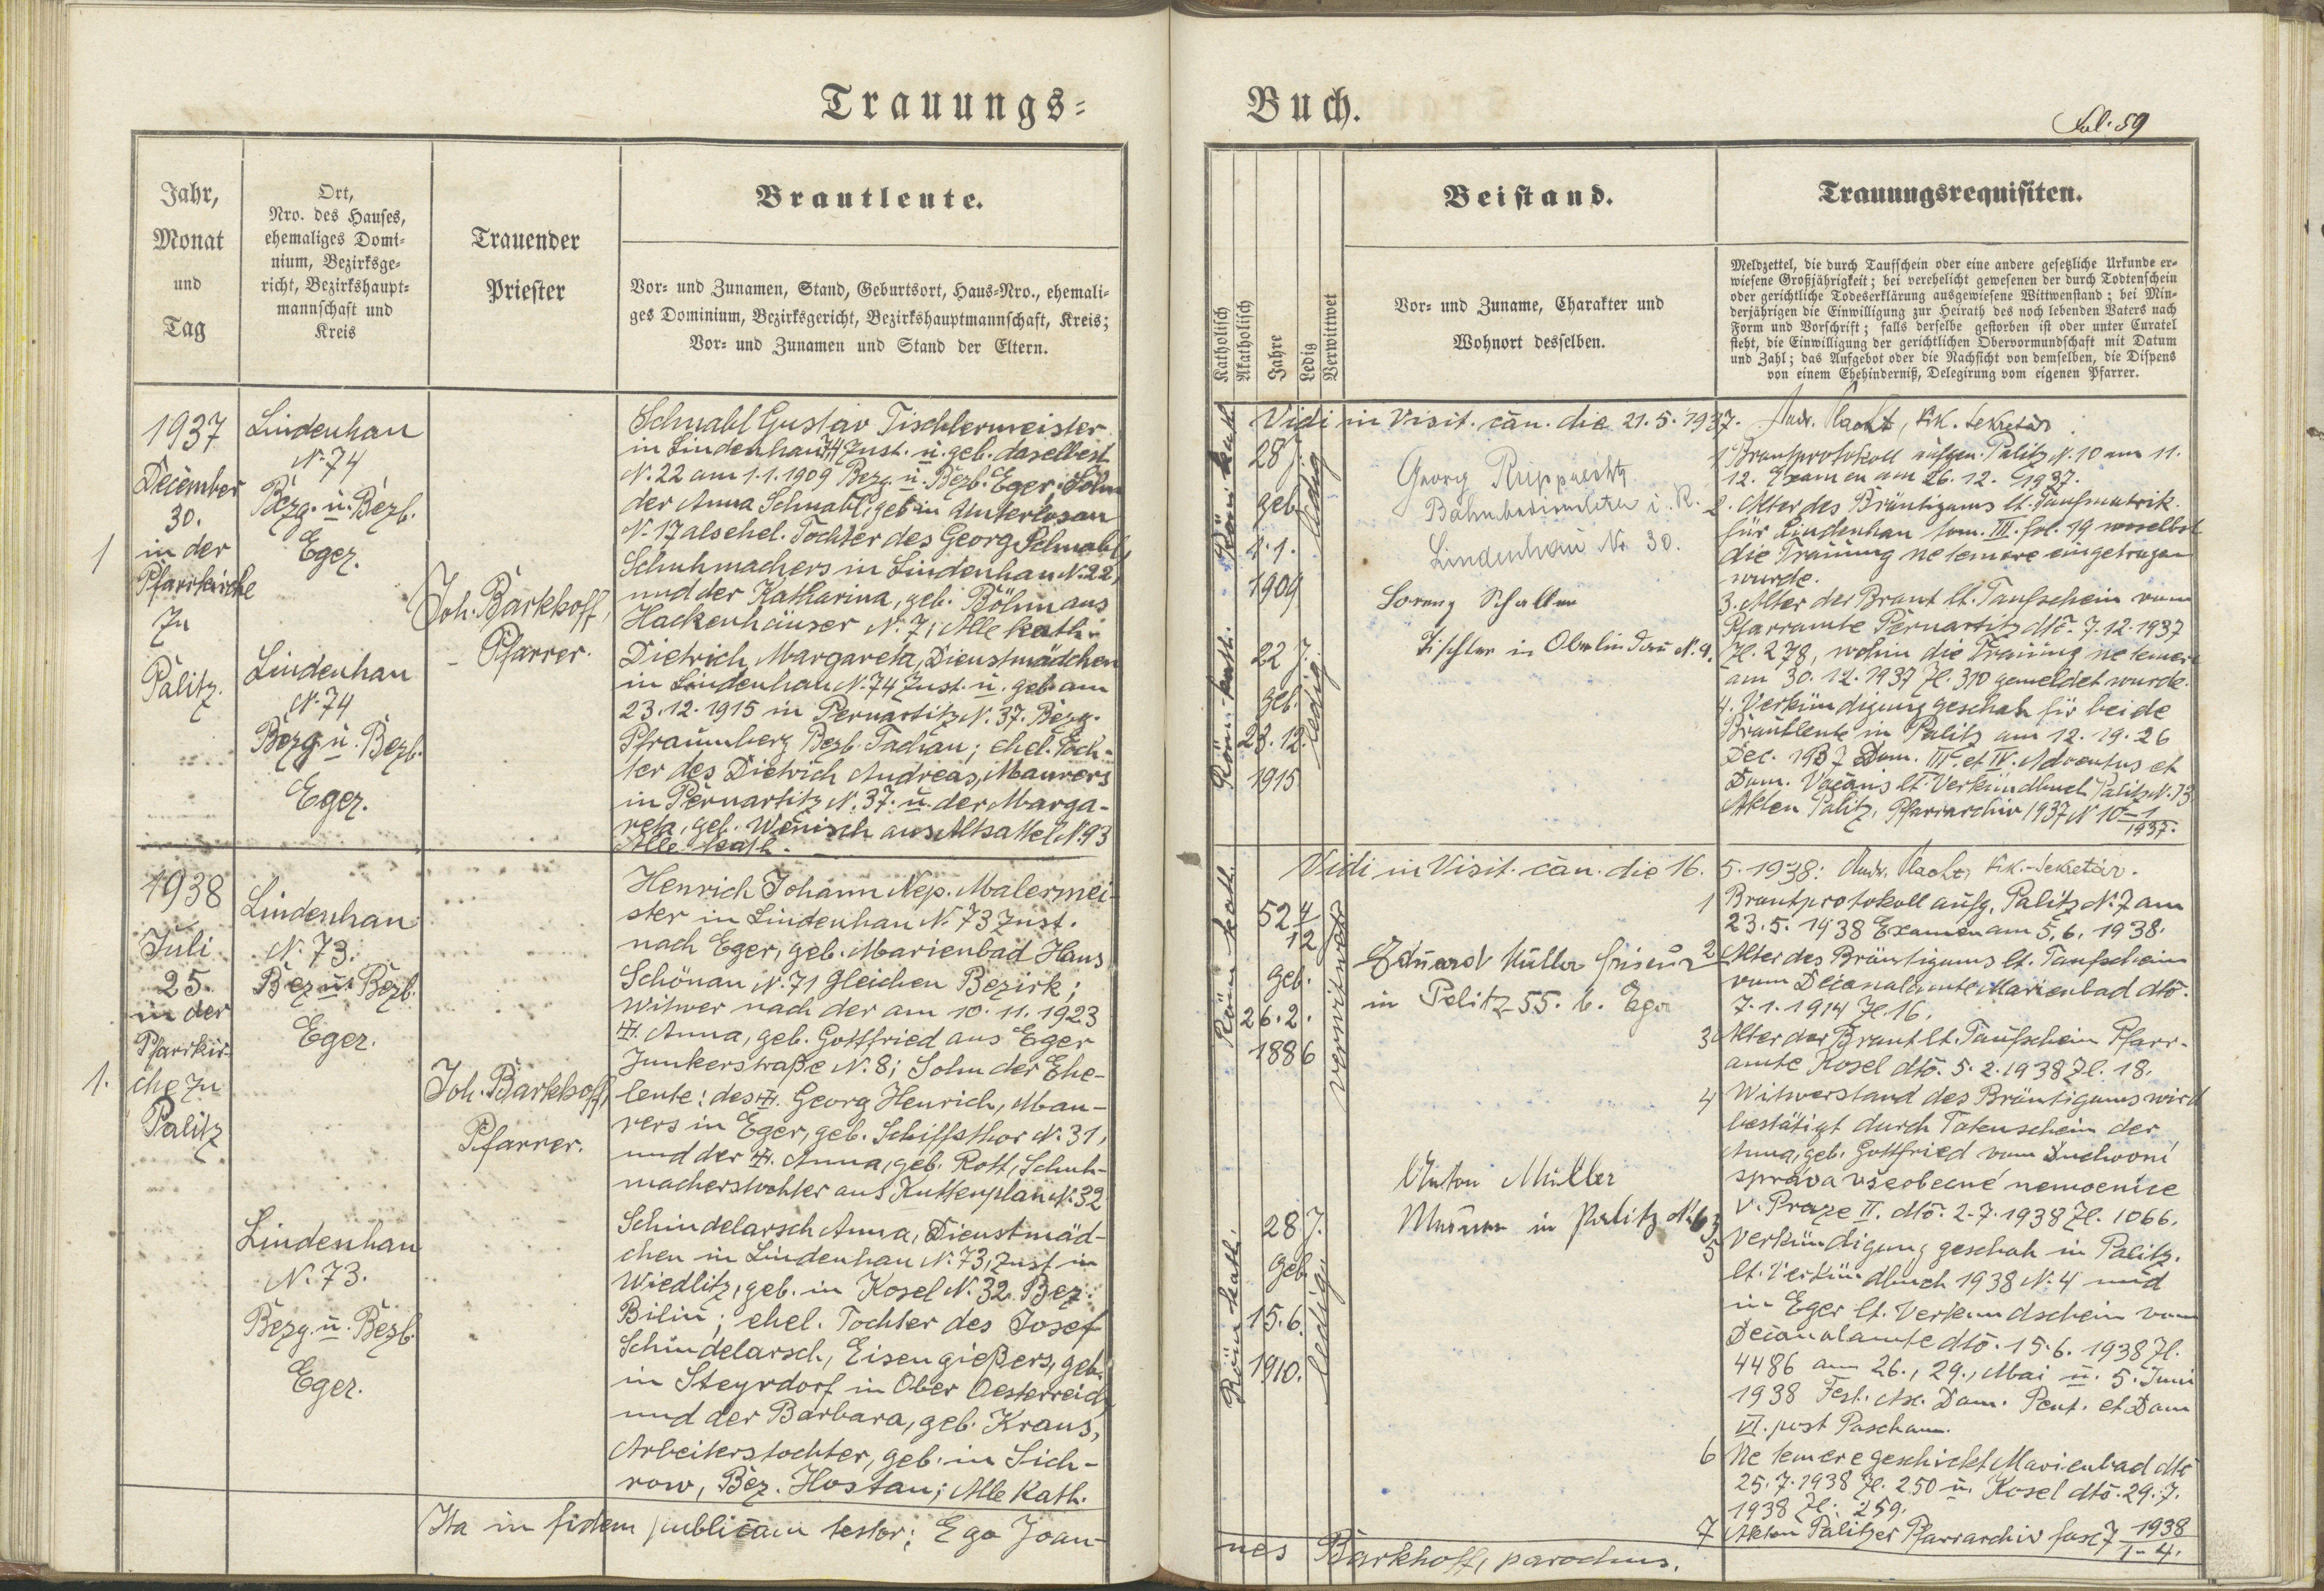 Trauungs=
Jahr,
Monat
und
Tag
Ort,
Nro. des Hauses,
ehemaliges Domi=
nium, Bezirksge=
richt, Bezirkshaupt=
mannschaft und
Kreis
Trauender
Priester
Brautleute.
Vor= und Zunamen, Stand, Geburtsort, Haus=Nro., ehemali=
ges Dominium, Bezirksgericht, Bezirkshauptmannschaft, Kreis;
Vor= und Zunamen und Stand der Eltern.
1
1937
December
30.
in der
Pfarrkirche
zu
Palitz.
Lindenhau
N. 74
Bezg. u. Bezb.
Eger.
Lindenhau
N. 74
Bezg. u. Bezb.
Eger.
Joh. Barkhoff,
Pfarrer.
Schnabl Gustav Tischlermeister
in Lindenhau 74 Zust. u. geb. daselbest
N. 22 am 1.1.1909 Bezg. u. Bezb. Eger; Sohn
der Anna Schnabl, geb in Unterlosau
N. 17 als ehel. Tochter des Georg Schnabl,
Schuhmachers in Lindenhau N. 22,
und der Katharina, geb. Böhm aus
Hackenhäuser N. 7; Alle kath.
Dietrich Margareta, Dienstmädchen
in Lindenhau N. 74 Zust. u. geb. am
23.12.1915 in Pernartitz N. 37. Bezg.
Pfraumberg Bezb. Tachau; ehel. Toch-
ter des Dietrich Andreas, Maurers
in Pernartitz N. 37. u. der Marga-
reta, geb. Wenisch aus Altsattel N. 93
Alle kath.
1.
1938
Juli
25.
in der
Pfarrkir-
che zu
Palitz
Lindenhau
N. 73.
Bez u. Bezb.
Eger.
Lindenhau
N. 73.
Bezg. u. Bezb.
Eger.
Joh. Barkhoff,
Pfarrer.
Henrich Johann Nep. Malermei-
ster in Lindenhau N. 73 Zust.
nach Eger, geb. Marienbad Haus
Schönau N. 71 gleichen Bezirk;
Witwer nach der am 10.11.1923
Anna, geb. Gottfried aus Eger
Junkerstraße N. 8; Sohn der Ehe-
leute: des Georg Henrich, Mau-
rers in Eger, geb. Schiffsthor N. 31,
und der Anna, geb. Rott, Schuh-
macherstochter aus Kuttenplan N. 32
Schindelarsch Anna, Dienstmäd-
chen in Lindenhau N. 73, Zust in
Wiedlitz, geb. in Kosel N. 32. Bez.
Bilin; ehel. Tochter des Josef
Schindelarsch, Eisengießers, geb.
in Steyrdorf in Ober Oesterreich
und der Barbara, geb. Kraus,
Arbeiterstochter, geb. in Sich-
row, Bez. Hostau; Alle Kath.
Ita in fidem publicam testor; Ego Joan-
Buch.
Fol. 59
Katholisch
Akatholisch
Jahre
Ledig
Verwittwet
Beistand.
Vor= und Zuname, Charakter und
Wohnort desselben.
Trauungsrequisiten.
Meldzettel, die durch Taufschein oder eine andere gesetzliche Urkunde er=
wiesene Großjährigkeit; bei verehelicht gewesenen der durch Todtenschein
oder gerichtliche Todeserklärung ausgewiesene Wittwenstand; bei Min=
derjährigen die Einwilligung zur Heirath des noch lebenden Vaters nach
Form und Vorschrift; falls derselbe gestorben ist oder unter Curatel
steht, die Einwilligung der gerichtlichen Obervormundschaft mit Datum
und Zahl; das Aufgebot oder die Nachsicht von demselben, die Dispens
von einem Ehehinderniß, Delegirung vom eigenen Pfarrer.
Vidi in Visit. can. die 21.5.1937. Sekretär.
Röm. kath.
28 J.
geb.
1.1.
1909
ledig
Röm. kath.
22 J.
geb.
23.12.
1915
ledig
Georg Rupprecht
Bahnbediensteter i. R.
Lindenhau Nr 30.
Lorenz Schaller
Tischler in Oberlindau N. 9.
1 Brautprotokoll aufgen. Palitz N. 10 am 11.
12. Examen am 26.12.1937.
2. Alter des Bräutigams lt. Taufmatrik
für Lindenhau tom. III. fol. 19 woselbst
die Trauung ne temere eingetragen
wurde.
3. Alter der Braut lt. Taufschein vom
Pfarramte Pernartitz dtô. 7.12.1937
Zl. 278, wohin die Trauung ne temere
am 30.12.1937 Zl. 310 gemeldet wurde.
4. Verkündigung geschah für beide
Brautleute in Palitz am 12. 19. 26
Dec. 1937 Dom. III. et IV. Adventus et
Dom. Vacans lt. Verkündbuch Palitz N. 13
Akten Palitz, Pfarrarchiv 1937 N 10 1-/1937.
Vidi in Visit. can. die 16. 5. 1938: Sekretär.
Röm. kath.
52 4/12
geb.
26.2.
1886
verwitwet
Röm kath.
28 J.
geb.
15.6.
1910.
ledig
Eduard Müller Friseur
in Palitz 55. b. Eger
Anton Müller
Maurer in Palitz N. 63
1 Brautprotokoll aufg. Palitz N. 7 am
23.5.1938 Examen am 5.6.1938.
2 Alter des Bräutigams lt. Taufschein
vom Decanalamte Marienbad dtô.
7.1.1914 Zl. 16.
3 Alter der Braut lt. Taufschein Pfarr-
amte Kosel dtô. 5.2.1938 Zl. 18.
4 Witwerstand des Bräutigams wird
bestätigt durch Totenschein der
Anna, geb. Gottfried vom Duchovní
správa všeobecné nemocnice
v Praze II. dtô. 2.7.1938 Zl. 1066.
5 Verkündigung geschah in Palitz.
lt. Verkündbuch 1938 N. 4 und
in Eger lt. Verkundschein vom
Decanalamte dtô. 15.6.1938 Zl.
4486 am 26., 29., Mai u. 5. Juni
1938 Fest. Asc. Dom. Pent. et Dom
VI. post Pascham.
6 Ne temere geschickt Marienbad dtô
25.7.1938 Zl. 250 u. Kosel dtô. 29.7.
1938 Zl: 259.
7 Akten Palitzer Pfarrarchiv fasc 7 1938/1-4.
nes Barkhoff, parochus.